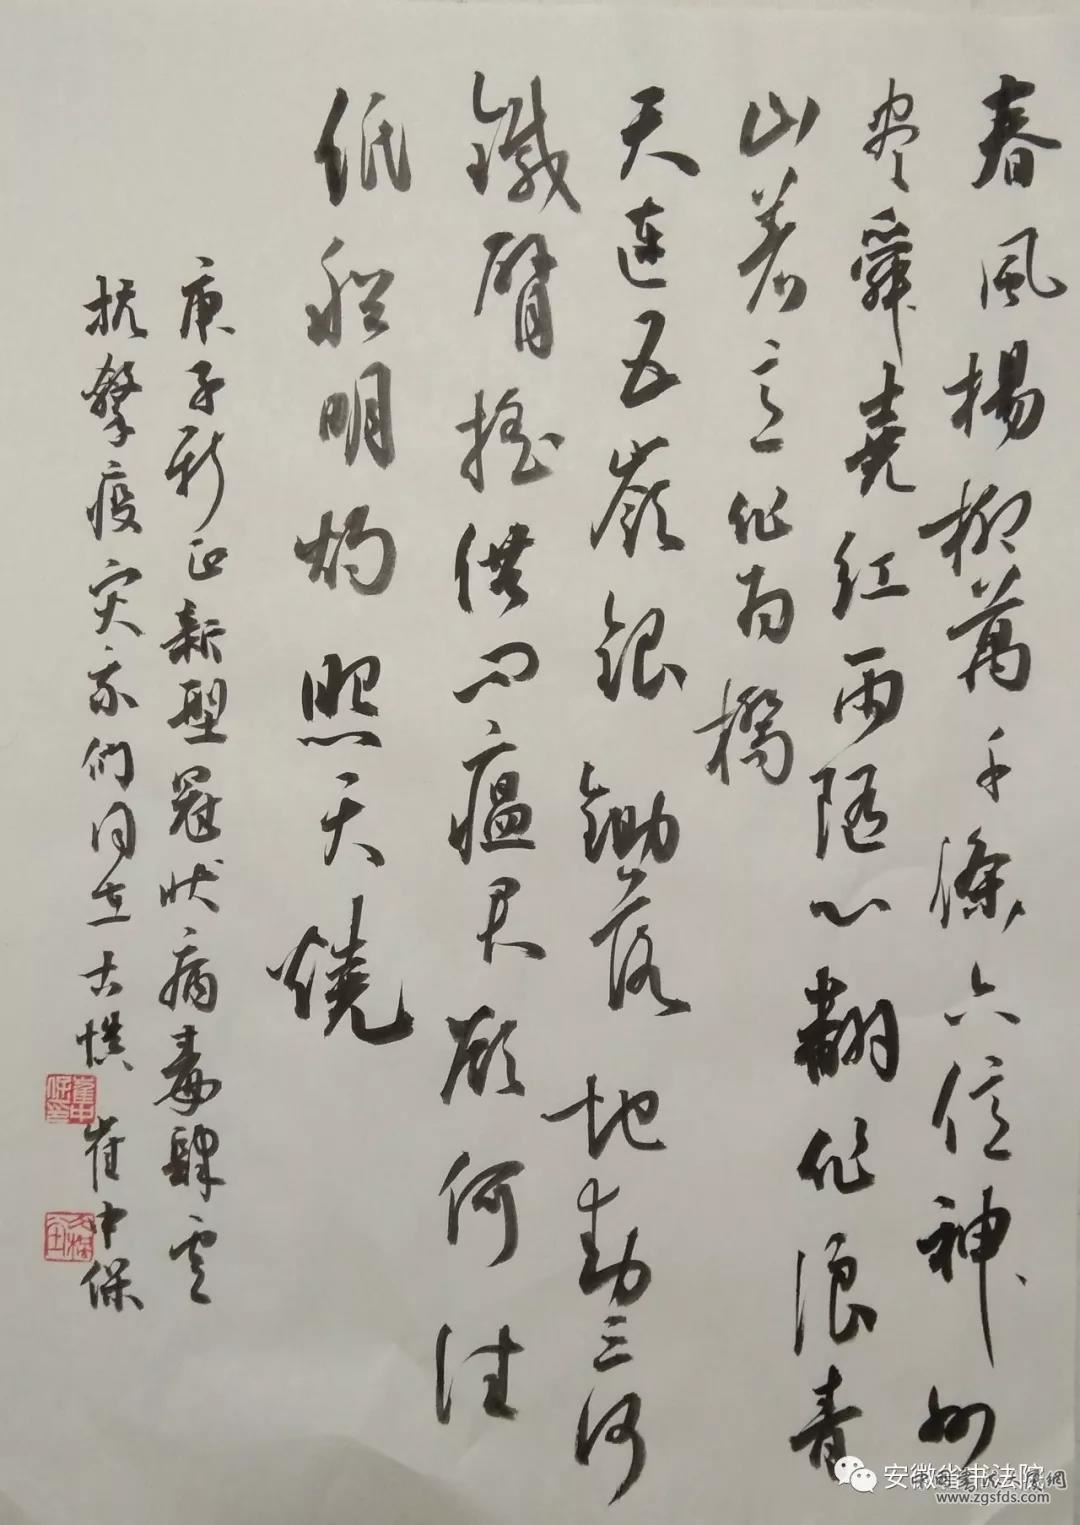 春風楊柳萬千條六億神州
尽舜堯紅雨随心翻作浪青
山着意化为橋
天连五嶺銀鋤落地動三河
鐵臂摇借问瘟君欲何往
纸船明烛照天燒
庚子新正新型冠状病毒肆虐
抗擊疫灾我們同在古 崔中保
崔中保印
安徽省书法院
中國書法大厦網
www.zgsfds.com